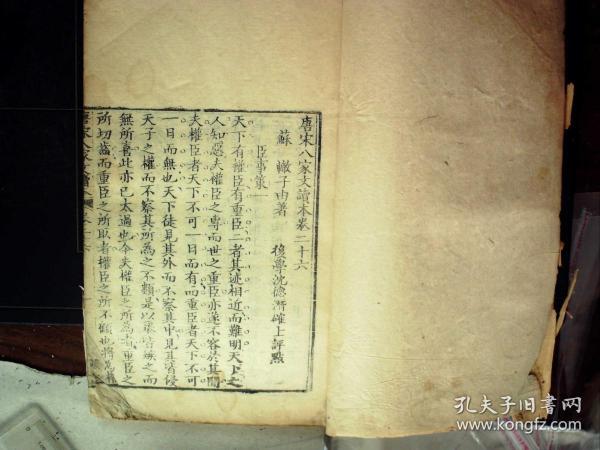 唐宋八家文讀本卷二十六
蘇 轍子由著 後學沈德潛確士評點
臣事策一
天下有權臣有重臣二者其迹相近而難明天下之
人知惡夫權臣之專而世之重臣亦遂不容於其間
夫權臣者天下不可一日而有而重臣者天下不可
一日而無也天下徒見其外而不察其中見其皆侵
天子之權而不察其所為之不類是以舉皆嫉之而
無所喜此亦已太過也今夫權臣之所為者重臣之
所切齒而重臣之所取者權臣之所不顧也將為權
唐宋八家文讀本
孔夫子旧书网
www.kongfz.com